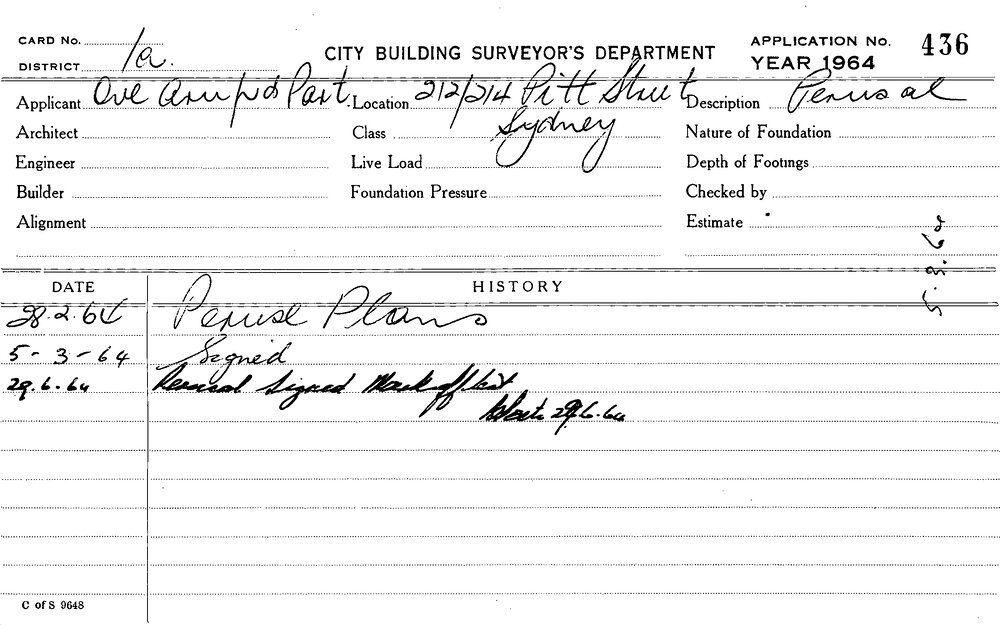 CARD No. 1a. CITY BUILDING SURVEYOR'S DEPARTMENT APPLICATION No. 436
DISTRICT YEAR 1964
Applicant Ove Arup & Part. Location 212/214 Pitt Street Description Perusal
Architect Class Sydney Nature of Foundation
Engineer Live Load Depth of Footings
Builder Foundation Pressure Checked by
Alignment Estimate
DATE HISTORY
28.2.64 Peruse Plans
5-3-64 Signed
29.6.64 Perusal Signed Mark off list
29.6.64
C of S 9648